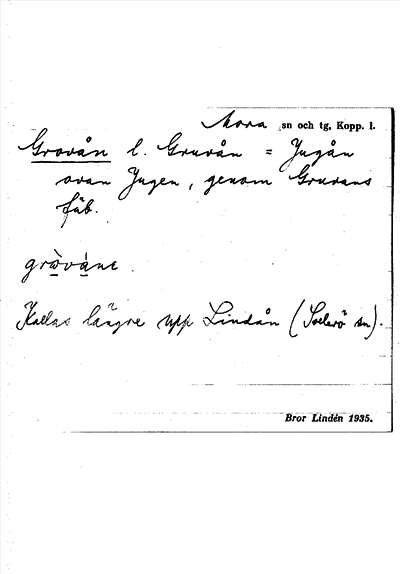 Mora sn och tg, Kopp. l.
Grovån l. Gruvån = Jugån
ovan Jugen, genom Gruvans
fäb.
gròvànẹ
Kallas längre upp Lindån (Sollerö sn).
Bror Lindén 1935.